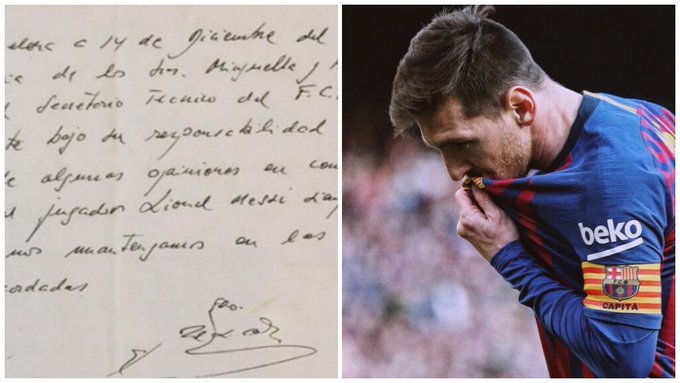 celona a 14 de Diciembre del
cia de los Srs. Minguella y
Secretario Técnico del F.C.
te bajo su responsabilidad
e algunas opiniones en con
l jugador Lionel Messi siem
nos mantengamos en las
cordadas
beko
FCB